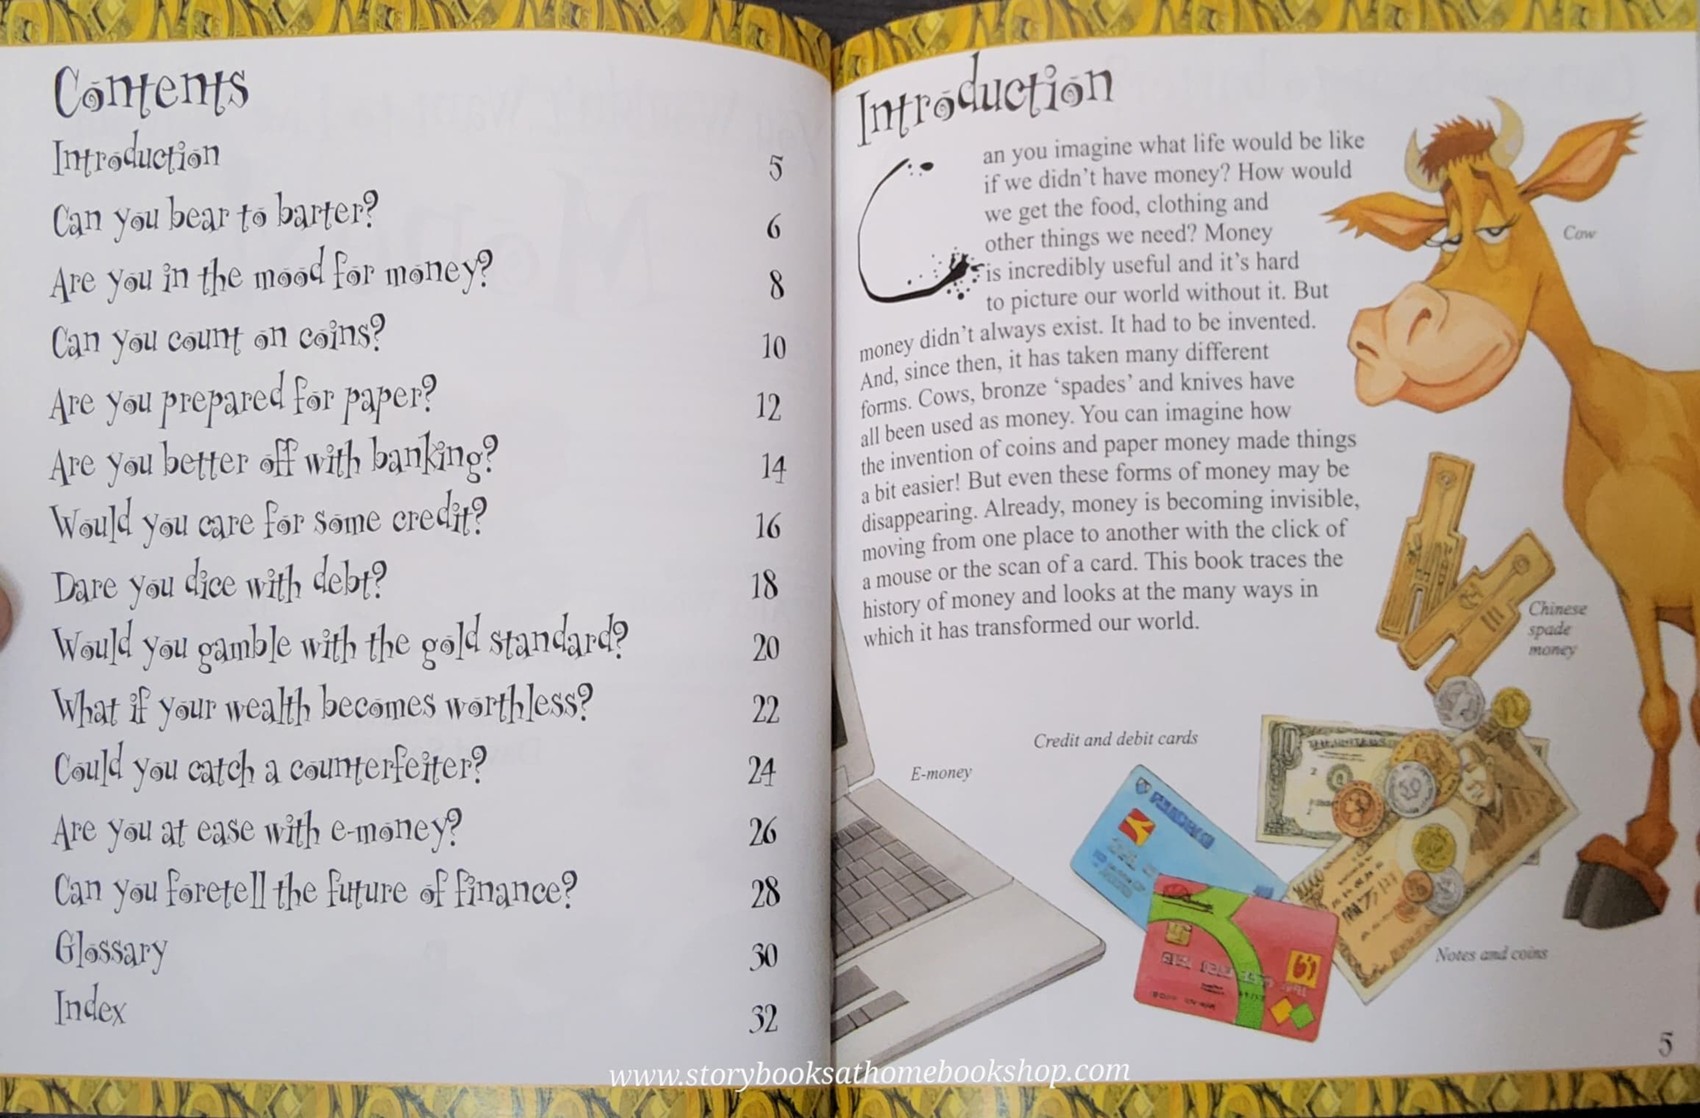 Contents
Introduction 5
Can you bear to barter? 6
Are you in the mood for money? 8
Can you count on coins? 10
Are you prepared for paper? 12
Are you better off with banking? 14
Would you care for some credit? 16
Dare you dice with debt? 18
Would you gamble with the gold standard? 20
What if your wealth becomes worthless? 22
Could you catch a counterfeiter? 24
Are you at ease with e-money? 26
Can you foretell the future of finance? 28
Glossary 30
Index 32
Introduction
Can you imagine what life would be like
if we didn't have money? How would
we get the food, clothing and
other things we need? Money
is incredibly useful and it's hard
to picture our world without it. But
money didn't always exist. It had to be invented.
And, since then, it has taken many different
forms. Cows, bronze 'spades' and knives have
all been used as money. You can imagine how
the invention of coins and paper money made things
a bit easier! But even these forms of money may be
disappearing. Already, money is becoming invisible,
moving from one place to another with the click of
a mouse or the scan of a card. This book traces the
history of money and looks at the many ways in
which it has transformed our world.
Cow
Chinese
spade
money
Credit and debit cards
E-money
Notes and coins
5
www.storybooksathomebookshop.com